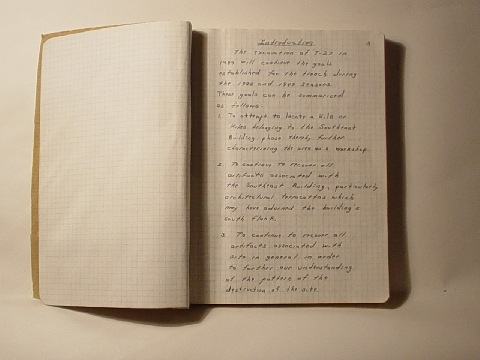 Introduction
The excavation of T-27 in
will continue the goals
established for the trench during
the and seasons.
These goals can be summarized
as follows:
1. To attempt to locate a Kiln or
Kilns belonging to the Southeast
Building phase thereby further
characterizing the area as a workshop.
2. To continue to recover all
artifacts associated with
the Southeast Building, particularly
architectural terracottas which
may have adorned the building's
south flank.
3. To continue to recover all
artifacts associated with
site in general in order
to further our understanding
of the pattern of the
destruction of the site.